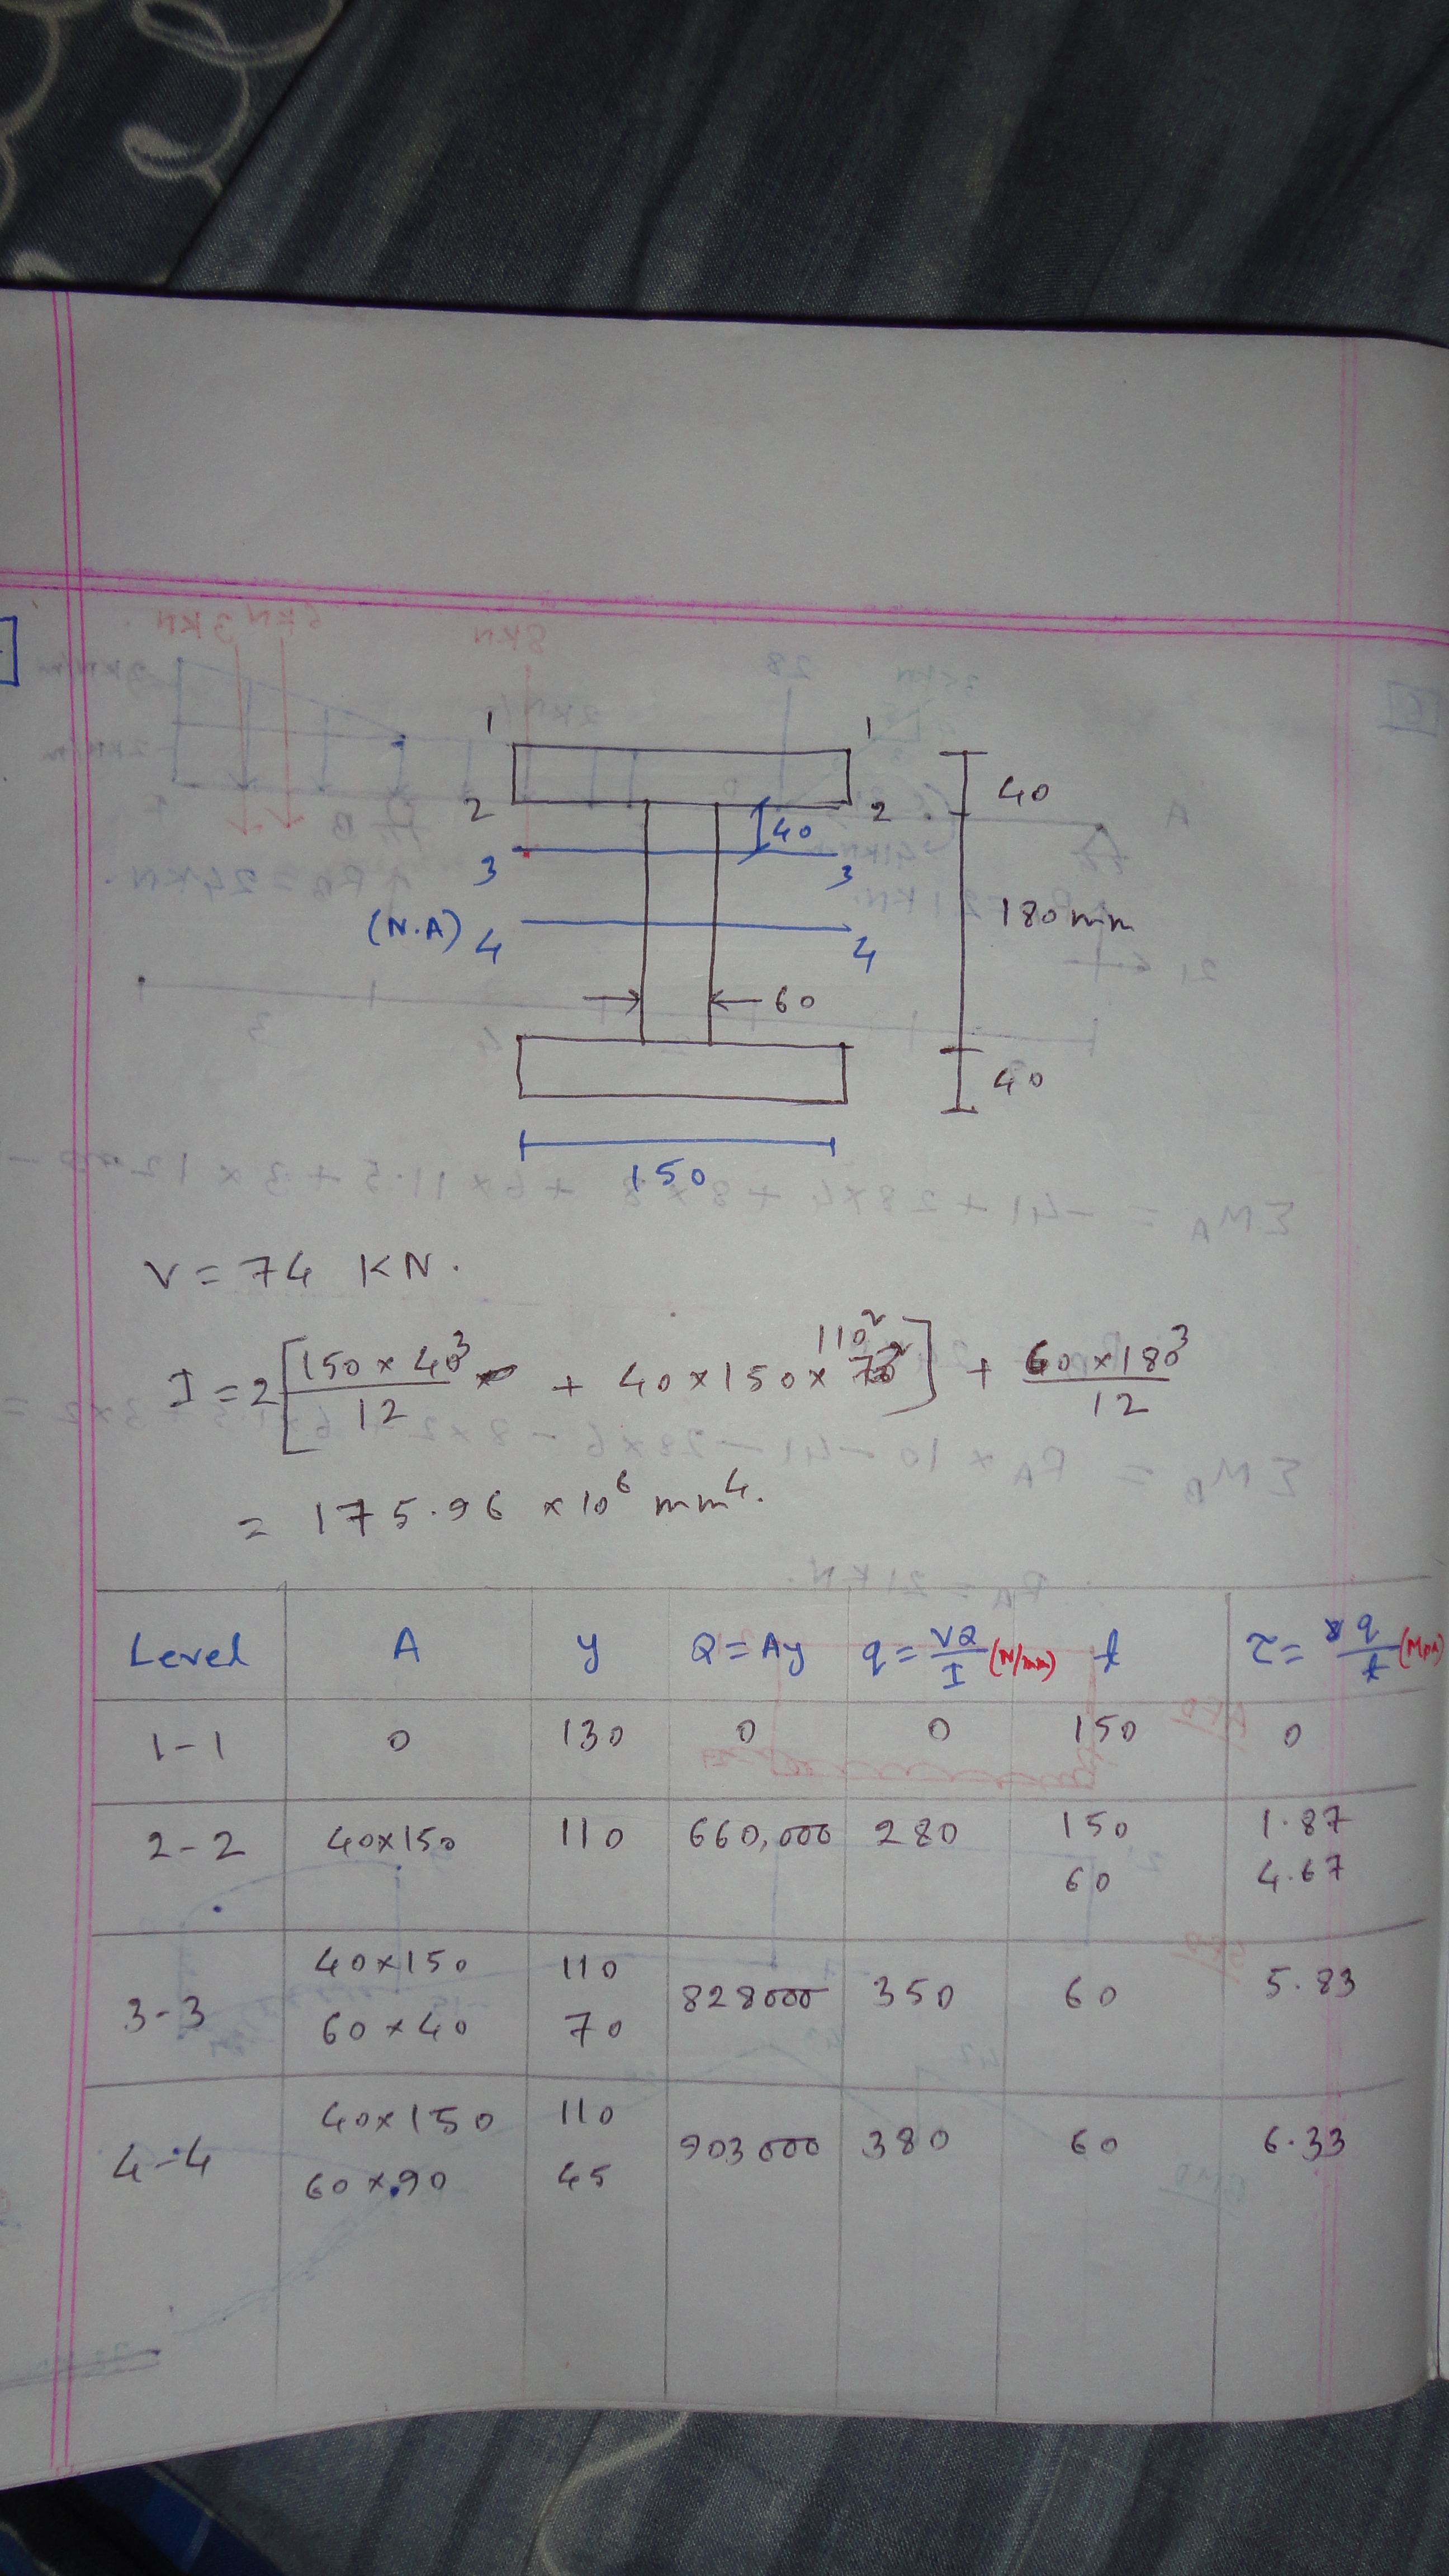 1 1
40
2 2
40
3 3
180 mm
(N.A) 4 4
60
40
150
V = 74 KN.
I = 2[150 × 40³/12 + 40 × 150 × 110²] + 60 × 180³/12
= 175.96 × 10⁶ mm⁴.
Level A y Q = Ay q = VQ/I (N/mm) t τ = q/t (MPa)
1-1 0 130 0 0 150 0
2-2 40×150 110 660,000 280 150 1.87
60 4.67
3-3 40×150 110 828000 350 60 5.83
60×40 70
4-4 40×150 110 903000 380 60 6.33
60×90 45